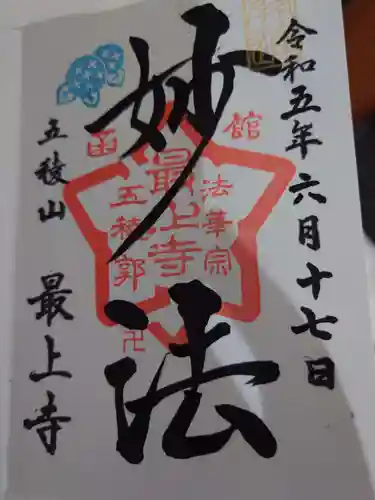 令和五年六月十七日
妙法
函館
最上寺
法華宗
五稜郭
卍
五稜山 最上寺